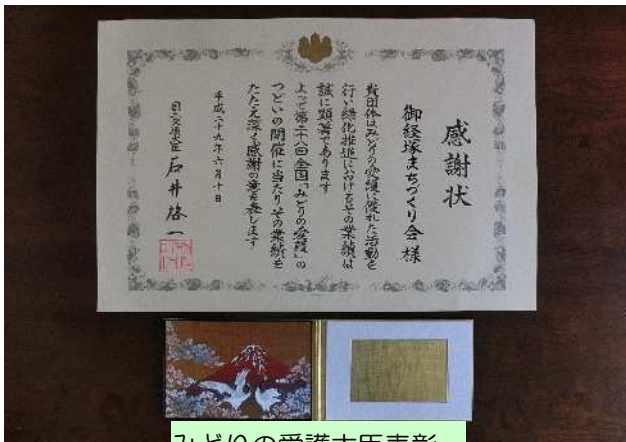 感謝状
御経塚まちづくり会様
貴団体はみどりの愛護に優れた活動を
行い緑化推進におけるその業績は
誠に顕著であります
よって第二十八回全国「みどりの愛護」の
つどいの開催に当たりその業績を
たたえ深く感謝の意を表します
平成二十九年六月十日
国土交通大臣 石井啓一
みどりの愛護大臣表彰